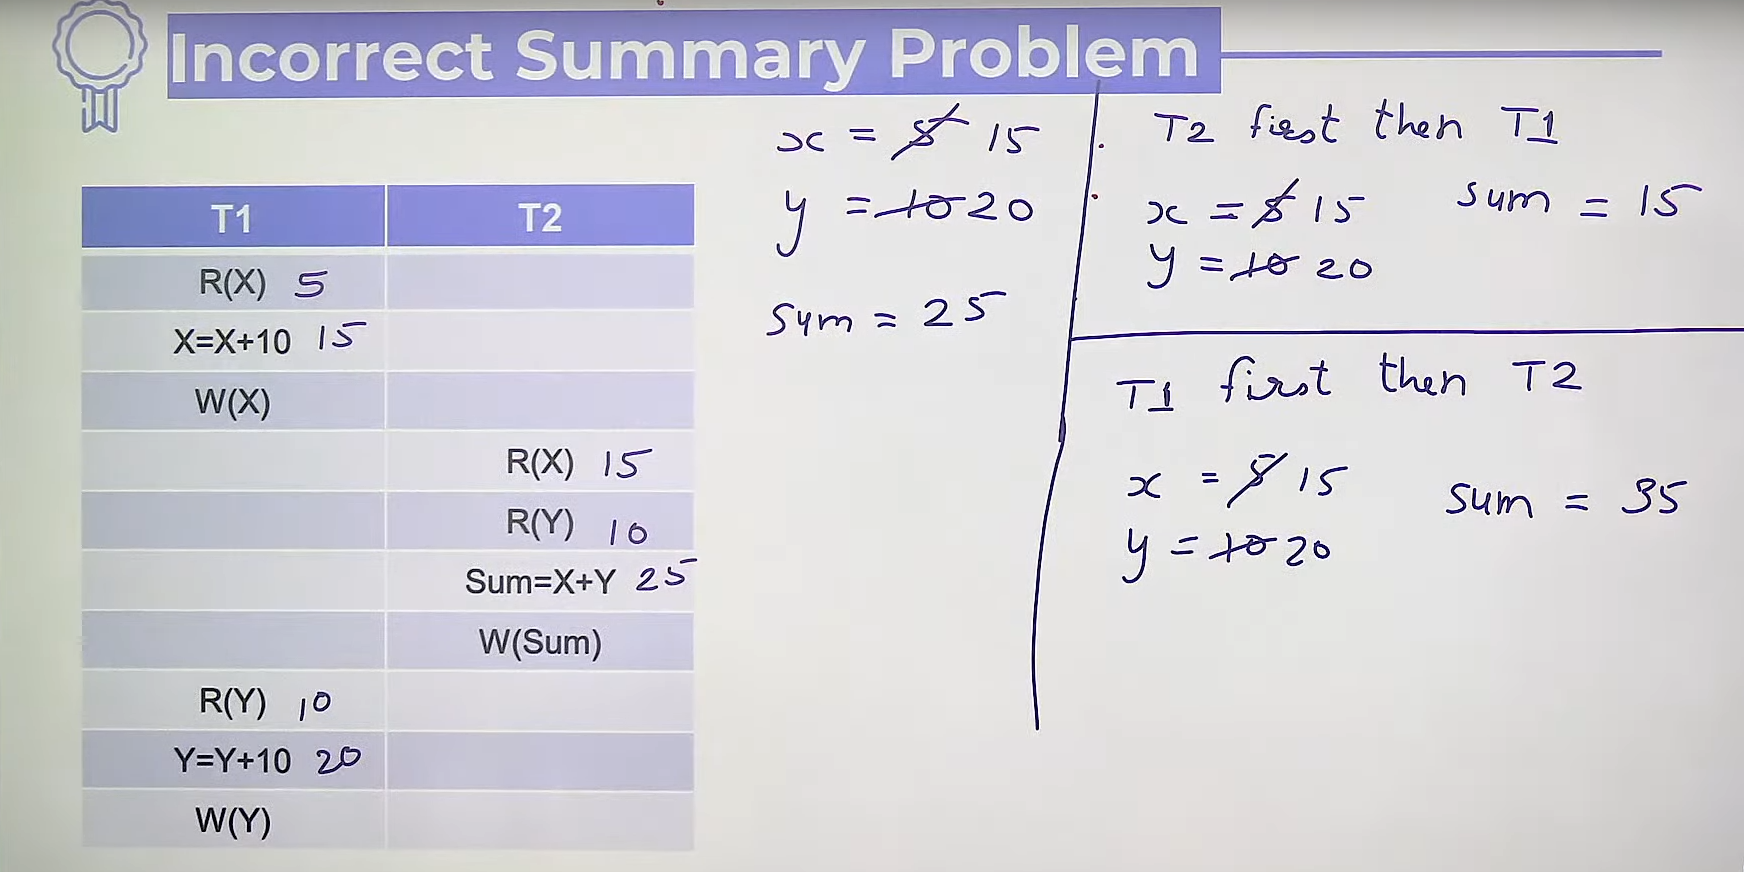 Incorrect Summary Problem
T1 T2
R(X) 5
X=X+10 15
W(X)
R(X) 15
R(Y) 10
Sum=X+Y 25
W(Sum)
R(Y) 10
Y=Y+10 20
W(Y)
x = 5 15
y = 10 20
Sum = 25
T2 first then T1
x = 5 15 Sum = 15
y = 10 20
T1 first then T2
x = 5 15 Sum = 35
y = 10 20